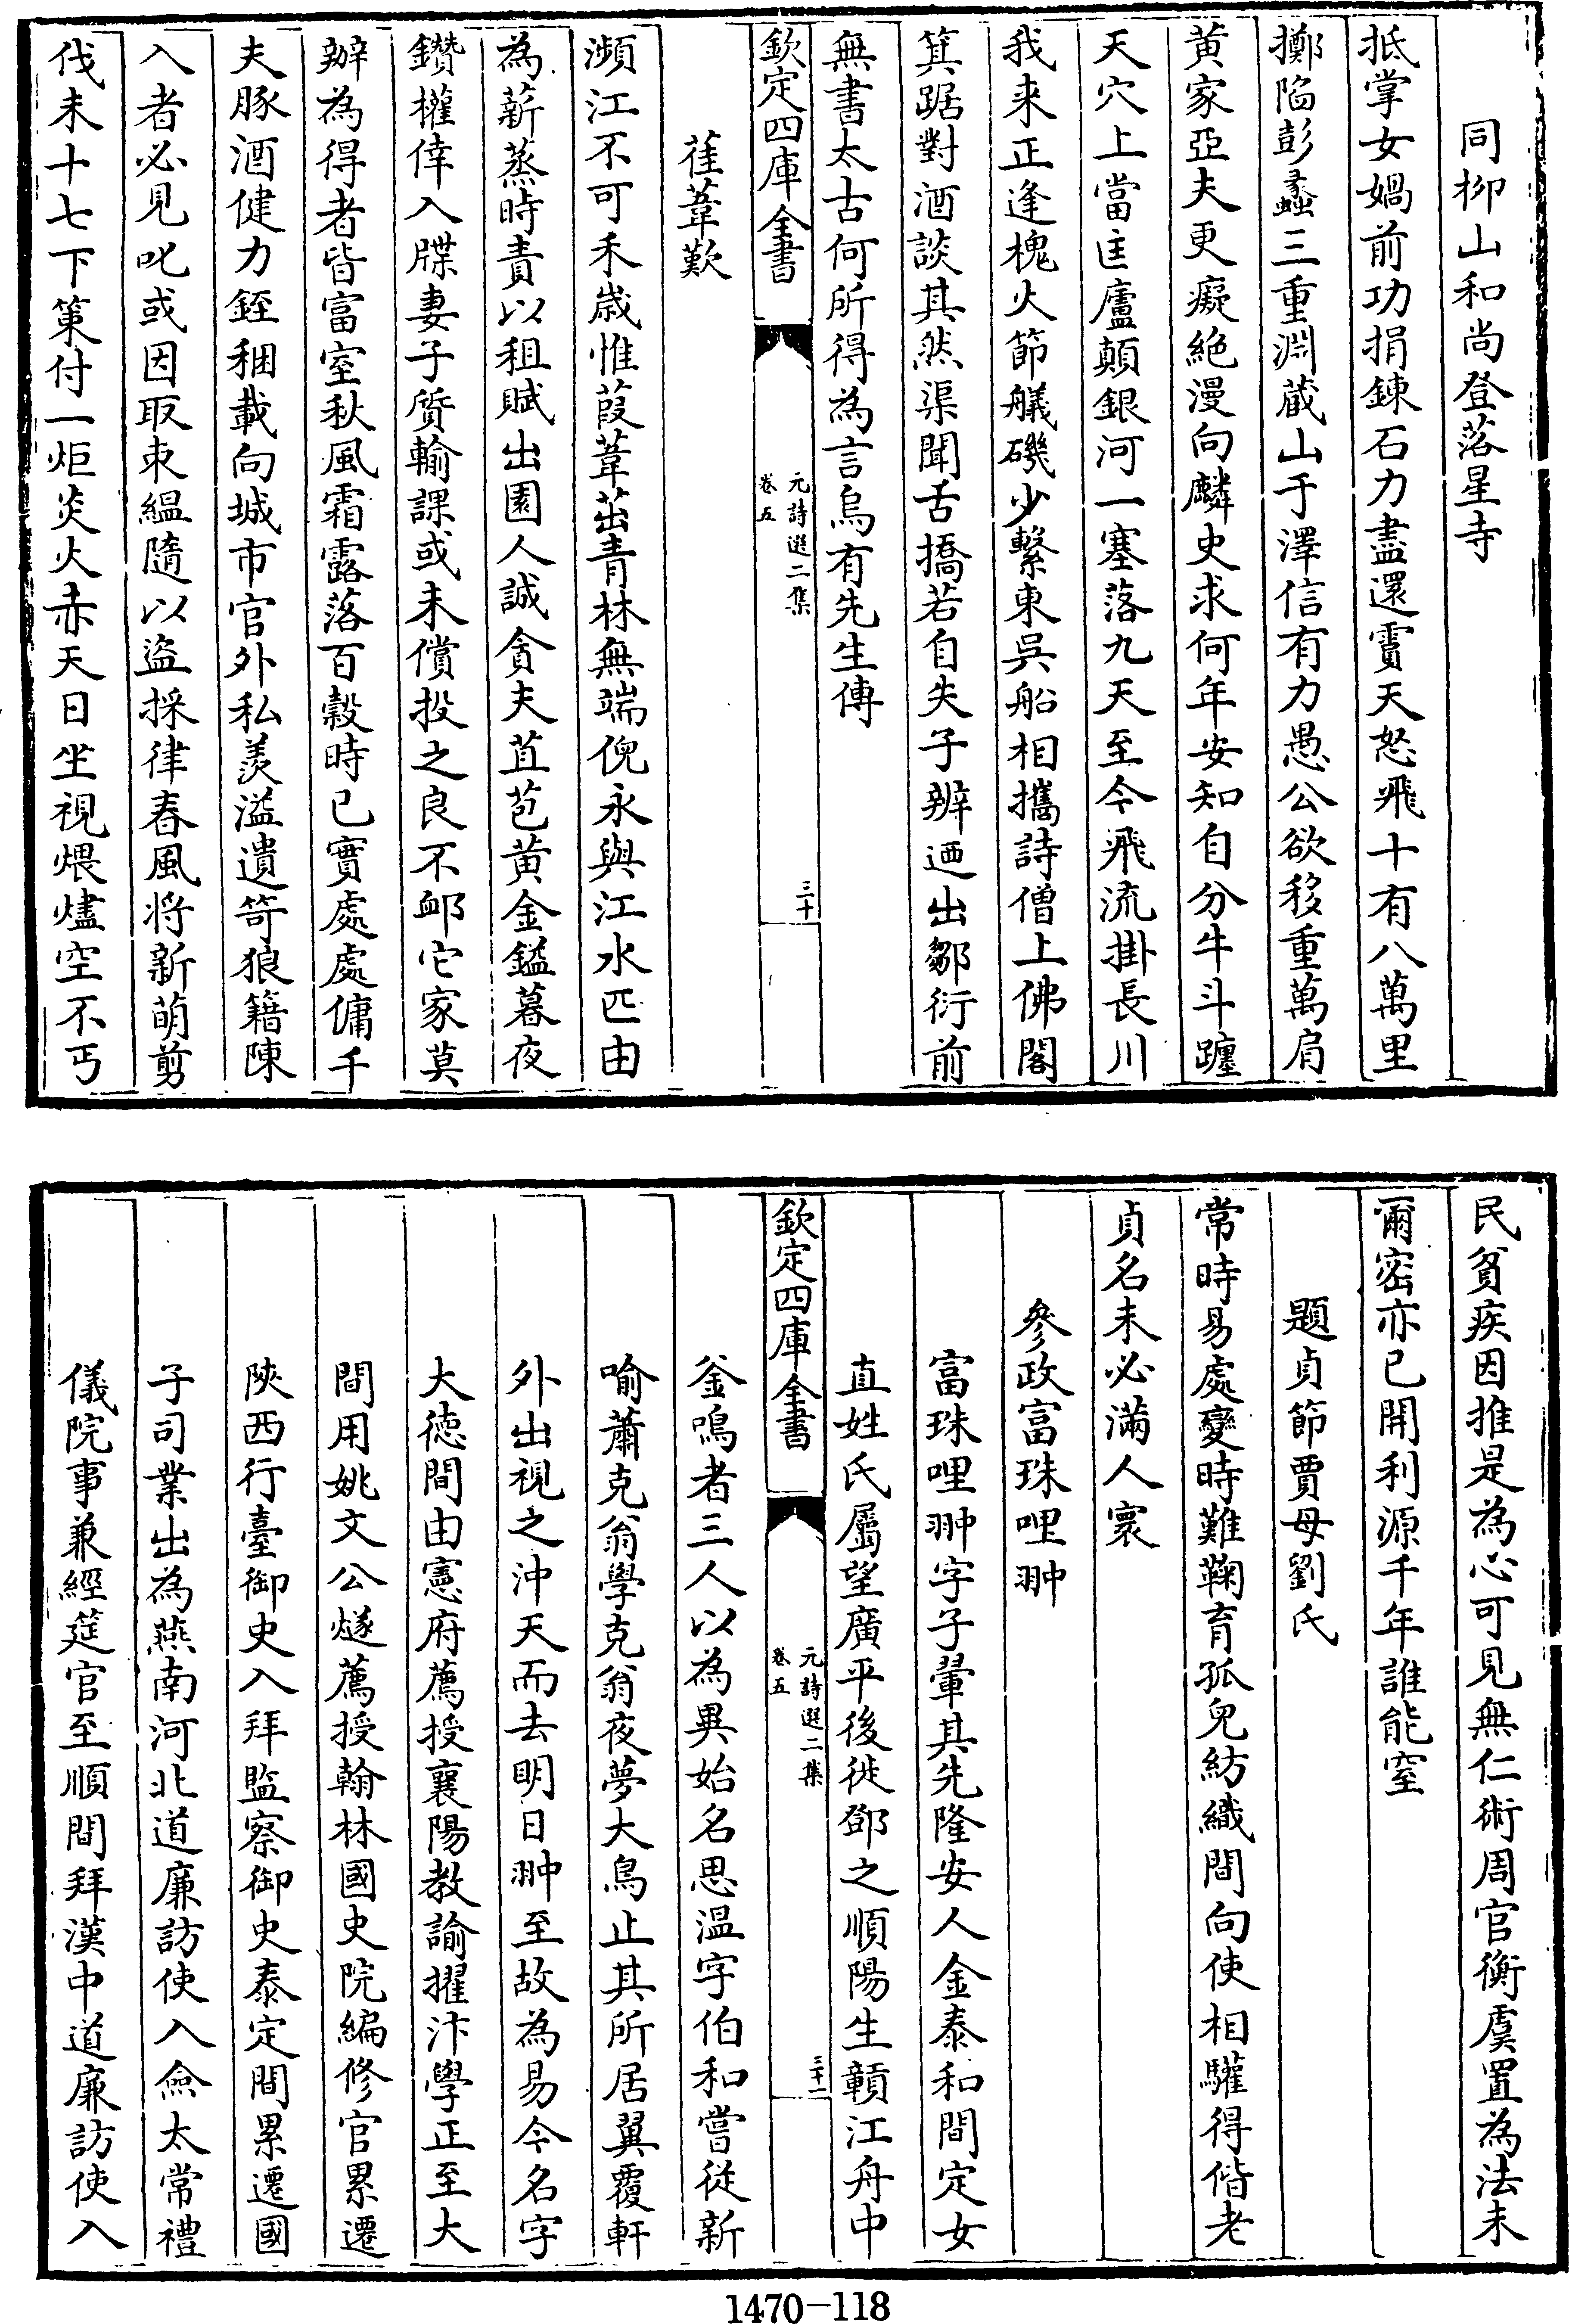 同柳山和尚登落星寺
抵掌女媧前功捐鍊石力盡還實天怒飛十有八萬里
擲陷彭蠡三重淵藏山于澤信有力愚公欲移重萬肩
黄家亞夫更癡絶漫向麟史求何年安知自分牛斗躔
天穴上當匡廬顛銀河一塞落九天至今飛流掛長川
我来正逢槐火節艤磯少繫東吳船相攜詩僧上佛閣
箕踞對酒談其然渠聞舌撟若自失子辨迺出鄒衍前
無書太古何所得為言烏有先生傳
欽定四庫全書
元詩選二集
卷五
三十
萑葦歎
瀕江不可禾歲惟葭葦茁青林無端倪永與江水匹由
為薪蒸時責以租賦出園人誠貪夫苴苞黄金鎰暮夜
鑽權倖入牒妻子質輸課或未償投之良不卹它家莫
辦為得者皆富室秋風霜露落百穀時已實處處傭千
夫豚酒健力銍稛載向城市官外私羨溢遺笴狼籍陳
入者必見叱或因取束緼隨以盜採律春風将新萌剪
伐未十七下策付一炬炎火赤天日坐視煨燼空不丐
民貧疾因推是為心可見無仁術周官衡虞置為法未
爾密亦已開利源千年誰能窒
題貞節賈母劉氏
常時易處變時難鞠育孤兒紡織間向使相驩得偕老
貞名未必滿人寰
參政富珠哩翀
富珠哩翀字子翬其先隆安人金泰和間定女
直姓氏屬望廣平後徙鄧之順陽生贛江舟中
欽定四庫全書
元詩選二集
卷五
三十一
釜鳴者三人以為異始名思溫字伯和嘗從新
喻蕭克翁學克翁夜夢大鳥止其所居翼覆軒
外出視之沖天而去明日翀至故為易今名字
大德間由憲府薦授襄陽教諭擢汴學正至大
間用姚文公燧薦授翰林國史院編修官累遷
陜西行臺御史入拜監察御史泰定間累遷國
子司業出為燕南河北道廉訪使入僉太常禮
儀院事兼經筵官至順間拜漢中道廉訪使入
1470-118